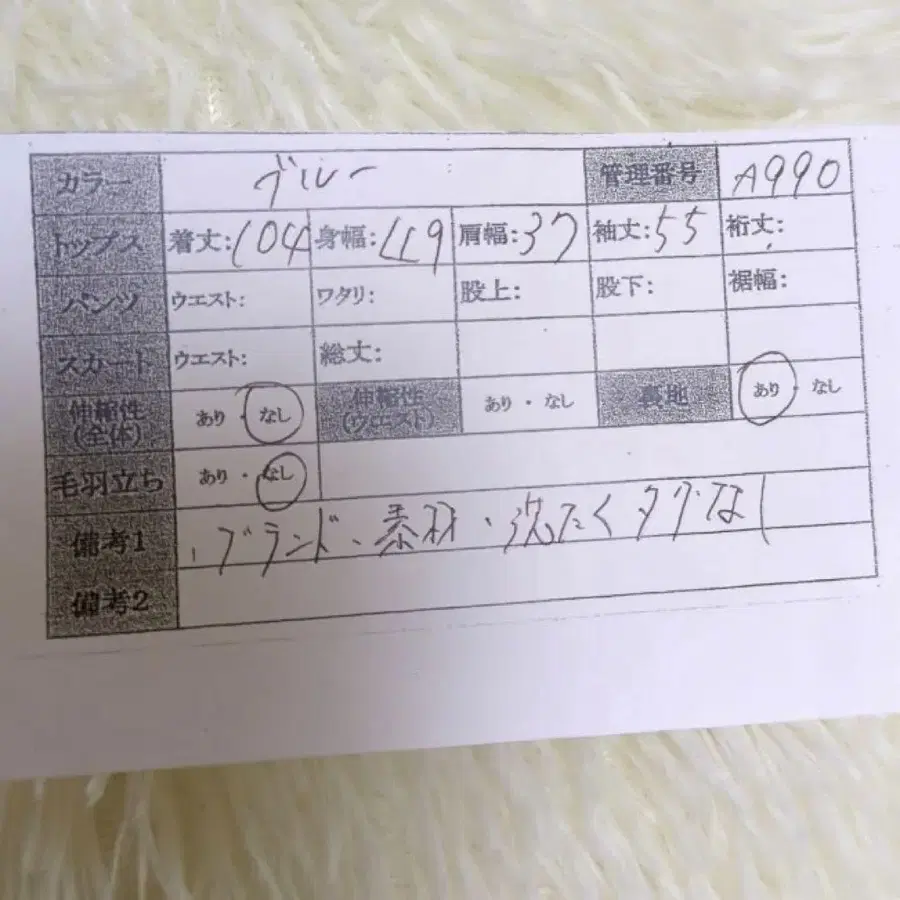 カラー ブルー 管理番号 A990
トップス 着丈:104 身幅:49 肩幅:37 袖丈:55 裄丈:
パンツ ウエスト: ワタリ: 股上: 股下: 裾幅:
スカート ウエスト: 総丈:
伸縮性(全体) あり・なし 伸縮性(ウエスト) あり・なし 裏地 あり・なし
毛羽立ち あり・なし
備考1 ・ブランド、素材・洗たくタグなし
備考2